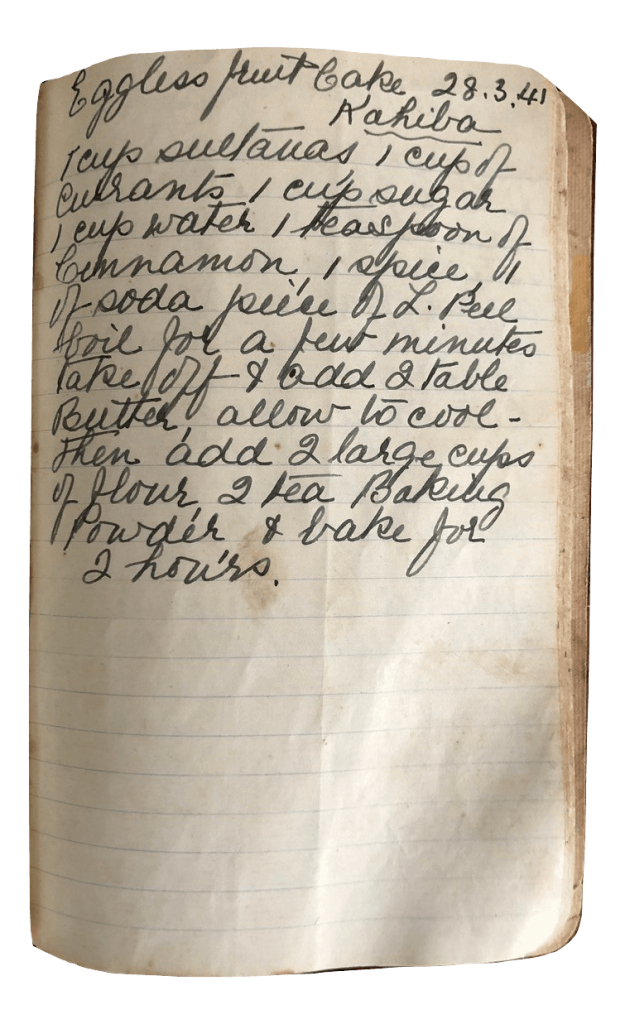 Eggless fruit Cake 28.3.41
Kahiba
1 cup sultanas, 1 cup of
currants 1 cup sugar
1 cup water 1 teaspoon of
Cinnamon, 1 spice, 1
of soda piece of L. Peel
boil for a few minutes
take off & add 2 table
Butter, allow to cool -
then add 2 large cups
of flour, 2 tea Baking
Powder & bake for
2 hours.